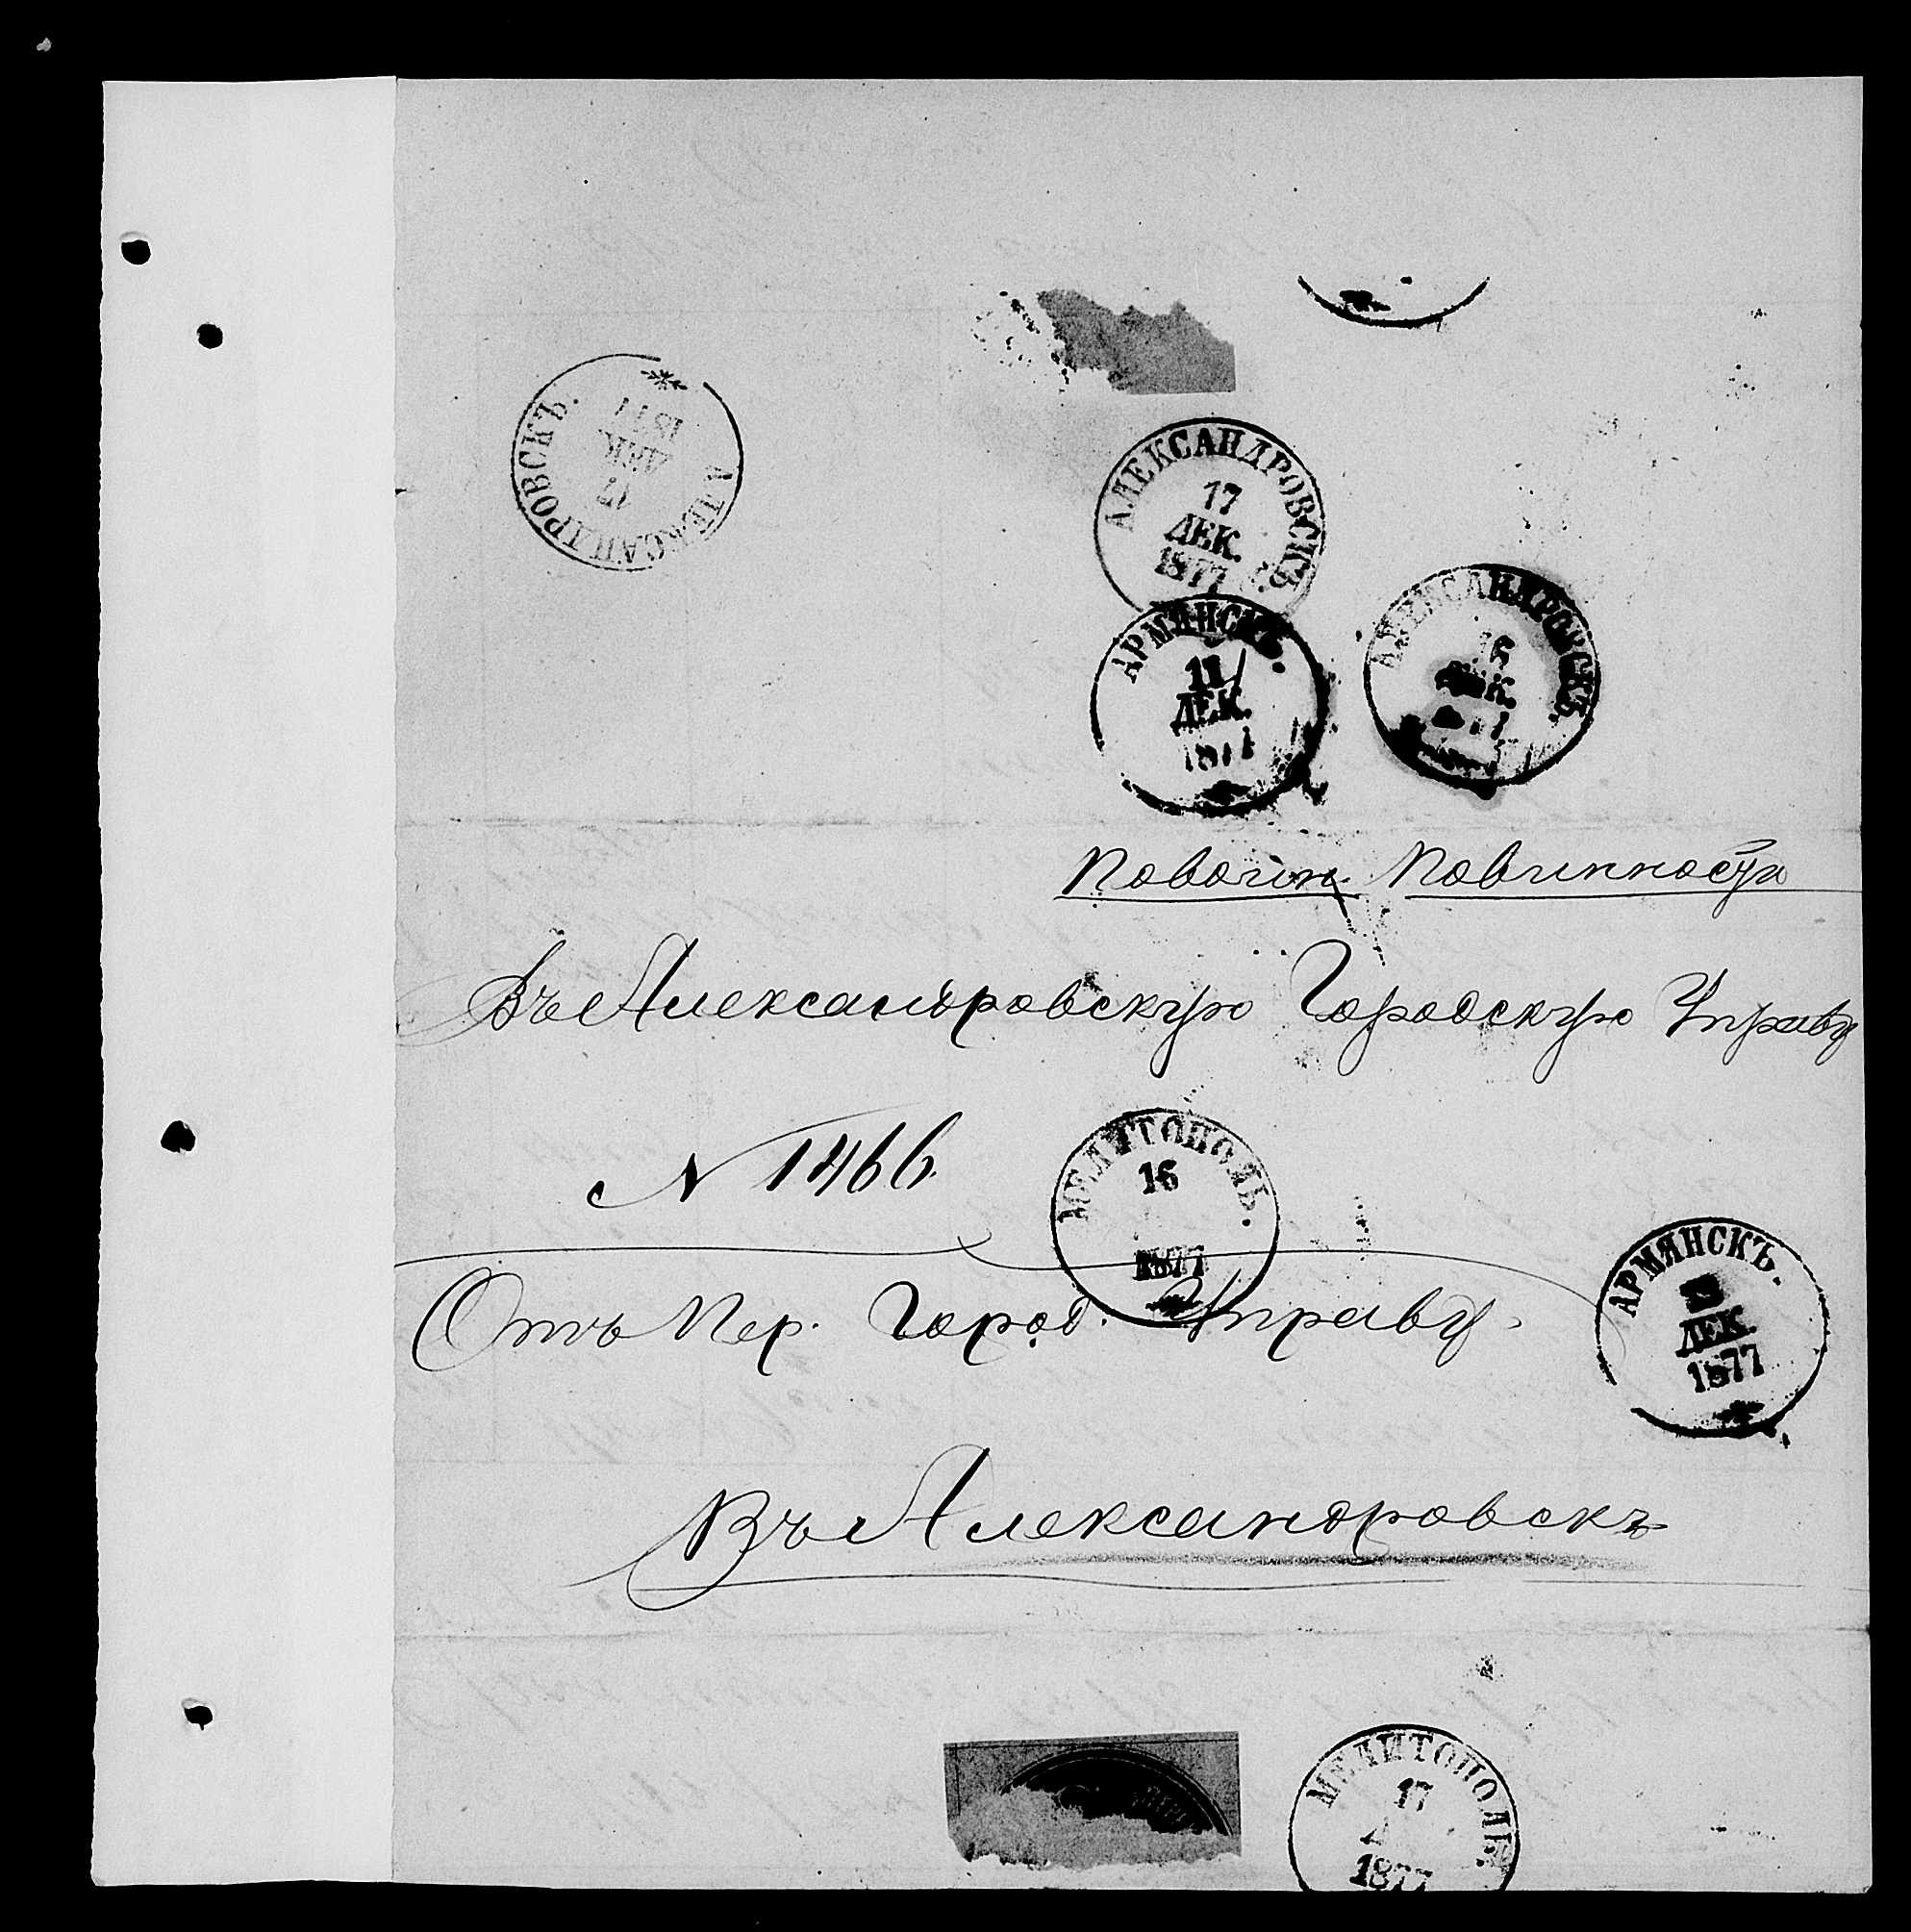 АЛЕКСАНДРОВСКЪ.
17
ДЕК.
1877
АЛЕКСАНДРОВСКЪ.
17
ДЕК.
1877
АРМЯНСКЪ.
11
ДЕК.
1877
АЛЕКСАНДРОВСКЪ.
По воин. Повинности
Въ Александровскую Городскую Управу
N 1466.
МЕЛИТОПОЛЬ.
16
1877
Отъ Пер. Город. Управы.
АРМЯНСКЪ.
ДЕК.
1877
Въ Александровскъ
МЕЛИТОПОЛЬ.
17
1877